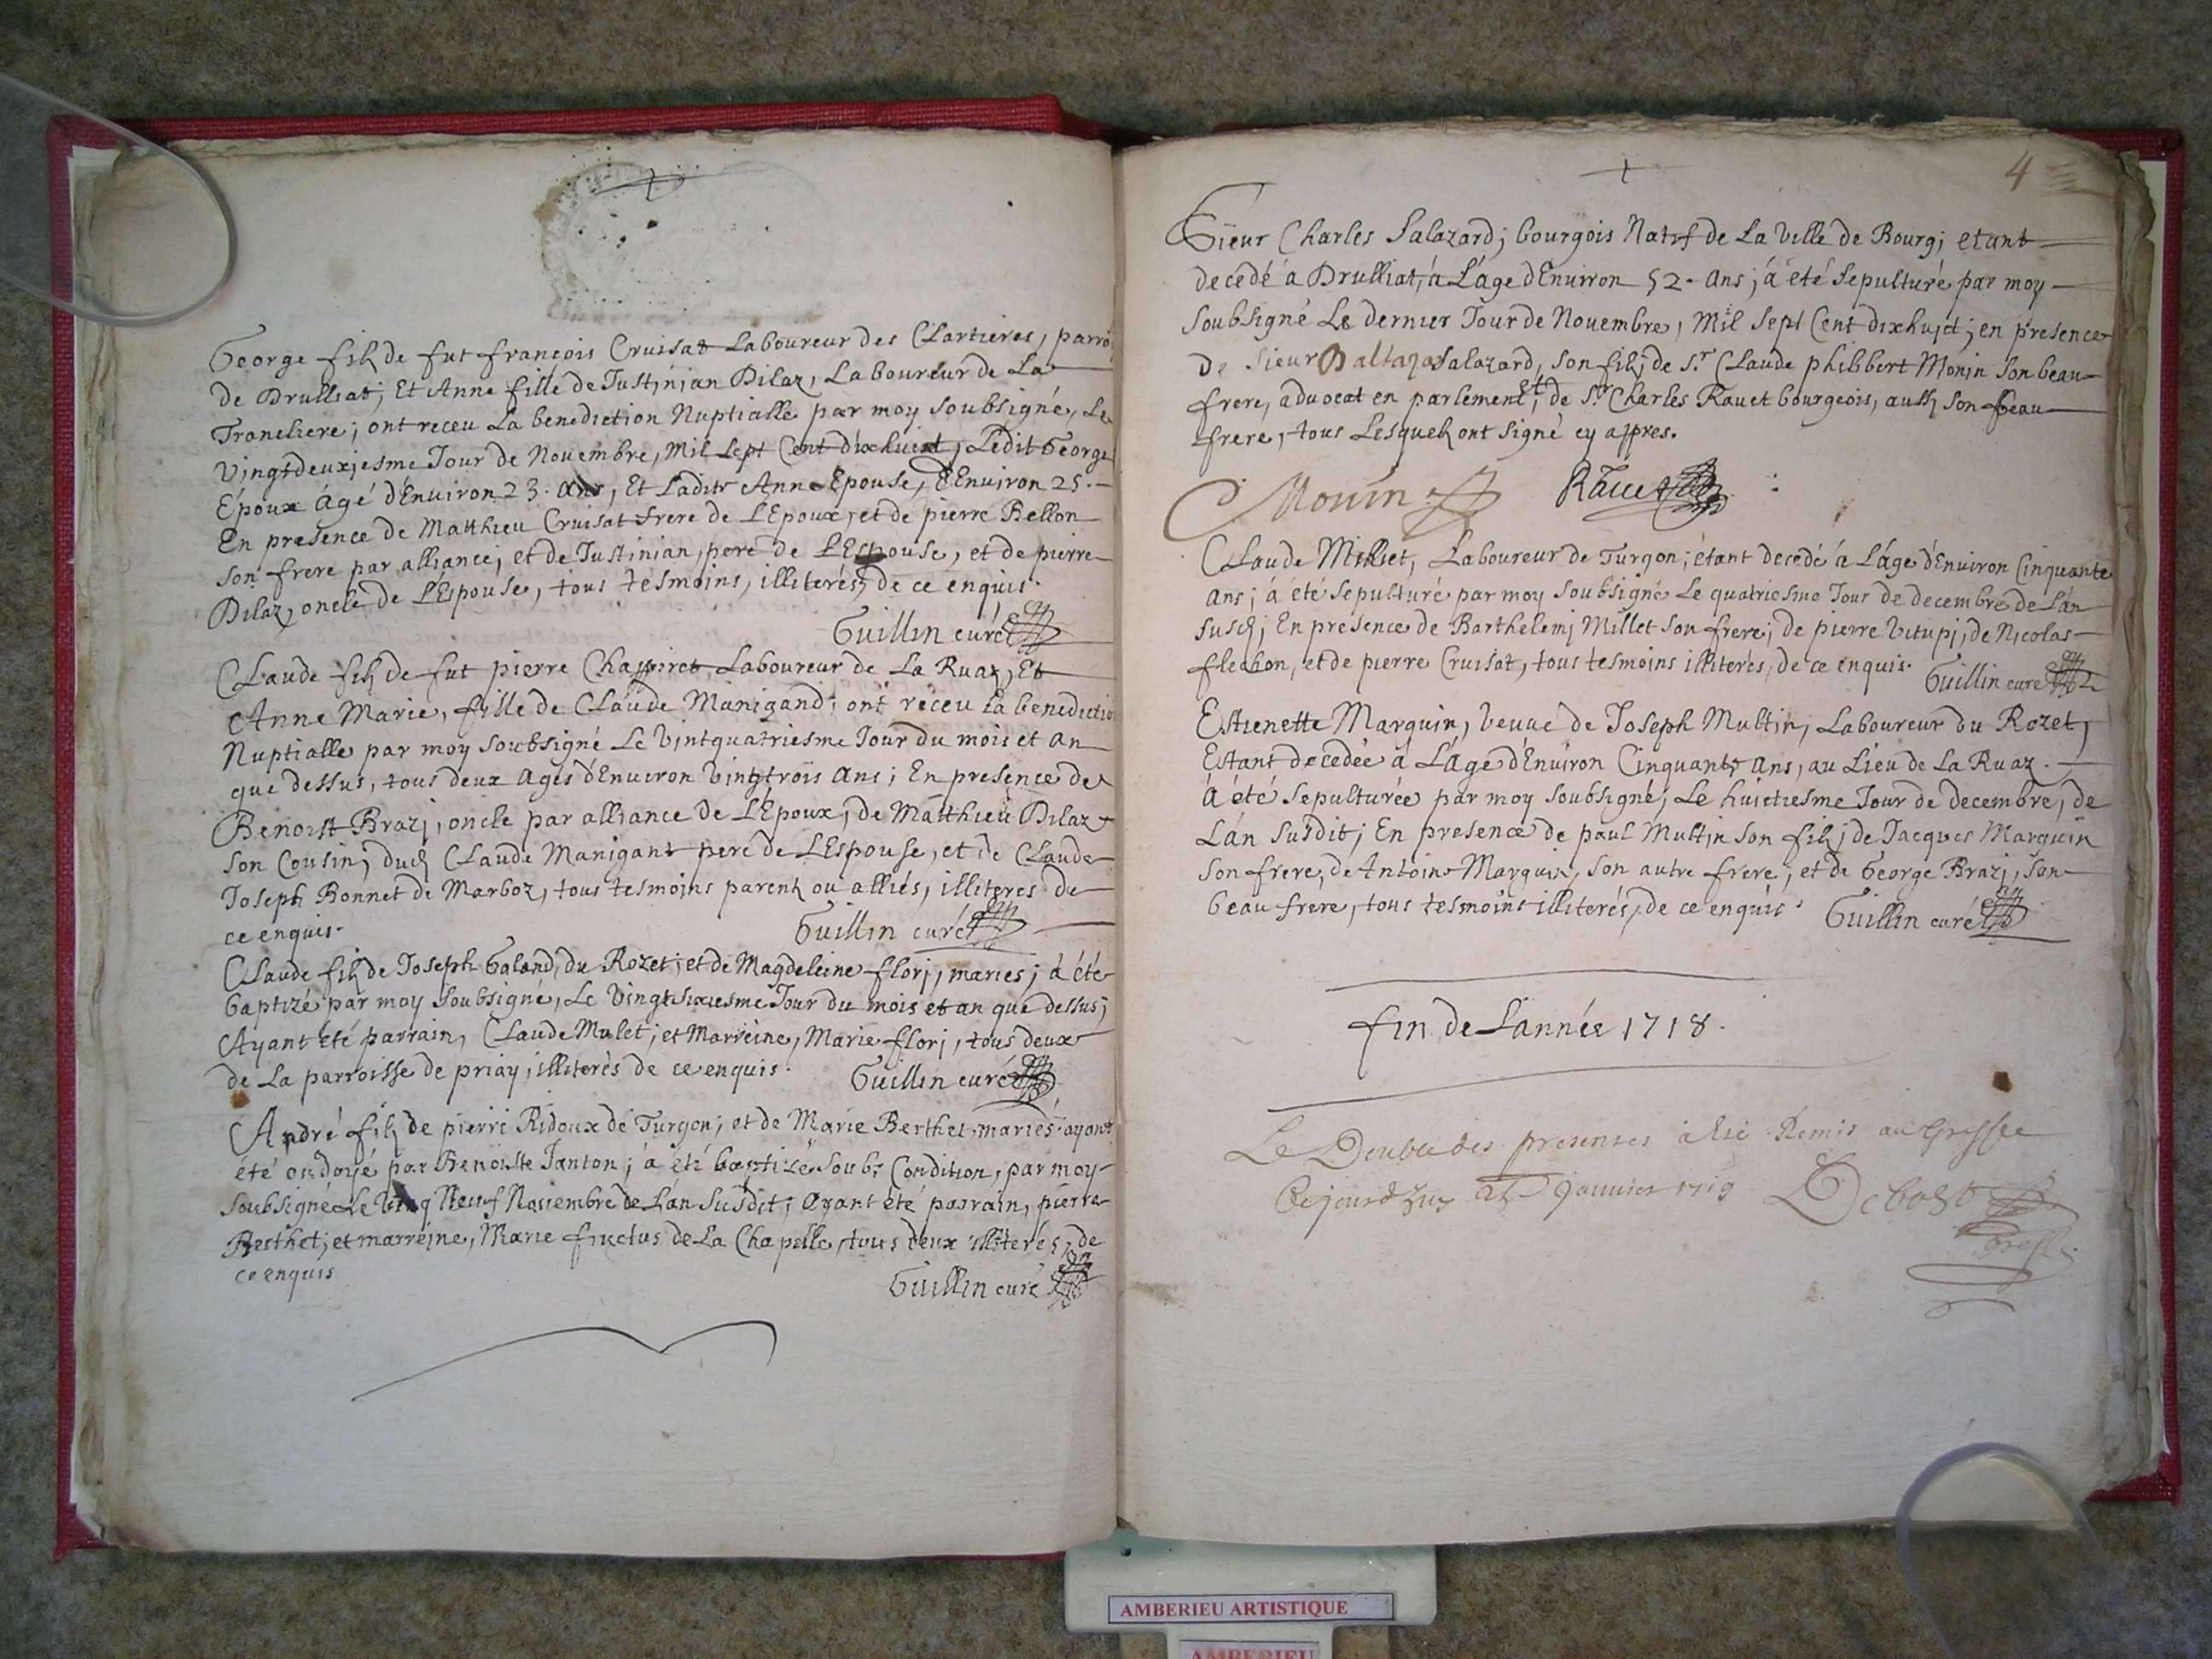 George fils de fut françois Cruisat Laboureur des Clartieres, parro
de Drulliat; Et Anne fille de Justinian Dilaz, Laboureur de La
Trancliere; ont receu La benediction Nuptialle par moy soubsigné, Le
Vingtdeuxiesme Jour de Novembre, Mil sept Cent dixhuict, Ledit George
Époux ágé d'Environ 23. ans, Et Ladite Anne Epouse, d'Environ 25.
En presence de Matthieu Cruisat frere de L'Epoux, et de pierre Bellon
son frere par alliance; et de Justinian, pere de L'Espouse, et de pierre
Dilaz, oncle de L'Espouse, tous tesmoins, illiterés, de ce enquis.
Guillin curé
Claude fils de fut pierre Chappiret Laboureur de La Ruaz, Et
Anne Marie, fille de Claude Manigand; ont réceu La benedictio
Nuptialle par moy soubsigné Le Vintquatriesme Jour du mois et an
que dessus, tous deux agés d'Environ Vingttrois ans; En presence de
Benoist Brazj, oncle par alliance de L'Époux, de Matthieu Dilaz
son Cousin, dud. Claude Manigant pere de L'Espouse, et de Claude
Joseph Bonnet de Marboz, tous tesmoins parents ou alliés, illiteres de
ce enquis. Guillin curé
Claude fils de Joseph Galand, du Rozet; et de Magdeleine florj, maries; á été
baptizé par moy soubsigné, Le Vingtsixiesme Jour du mois et an que dessus;
Ayant été parrain, Claude Mulet; et Marreine, Marie florj, tous deux
de La parroisse de priay, illiterés de ce enquis. Guillin curé
André fils de pierre Ridoux de Turgon; et de Marie Berthet, mariés; ayant
été ondoyé par Benoiste Janton; a été baptizé soubs Condition, par moy
soubsigné Le Vingt Neuf Novembre de L'an susdit; Ayant été parrain, pierre
Berthet; et marreine, Marie fructus de La Chapelle, tous deux illiterés, de
ce enquis
Guillin curé
4
Sieur Charles Salazard; bourgois Natif de La Ville de Bourg; etant
decedé a Drulliat, á L'áge d'Environ 52. ans; á été sepulturé par moy
soubsigné Le dernier Jour de Novembre, Mil sept Cent dixhuict; en presence
De Sieur Baltazar Salazard, son fils; de Sr. Claude philibert Monin son beau
frere, advocat en parlement; Et de Sr. Charles Ravet bourgeois, aussi son beau
frere, tous Lesquels ont signé cy appres.
Monin Ravet
Claude Millet, Laboureur de Turgon; étant decedé á L'áge d'Environ Cinquante
ans; á été sepulturé par moy soubsigné Le quatriesme Jour de decembre de L'an
susd; En presence de Barthelemj Millet son frere; de pierre Vitupj, de Nicolas
flechon, et de pierre Cruisat, tous tesmoins illiterés, de ce enquis. Guillin curé
Estienette Marquin, Veuve de Joseph Multin, Laboureur du Rozet,
Estant decedée á L'áge d'Environ Cinquante ans, au Lieu de La Ruaz.
Á été sepulturée par moy soubsigné, Le huictiesme Jour de decembre, de
L'án susdit; En presence de paul Multin son fils; de Jacques Marquin
son frere, de Antoine Marquin, son autre frere, et de George Brazj, son
beau frere, tous tesmoins illiterés, de ce enquis. Guillin curé
fin de L'année 1718.
Le Double des presentes a Esté Remis au Greffe
Cejourdhuy Janvier 1719 Debost
AMBERIEU ARTISTIQUE
AMBERIEU